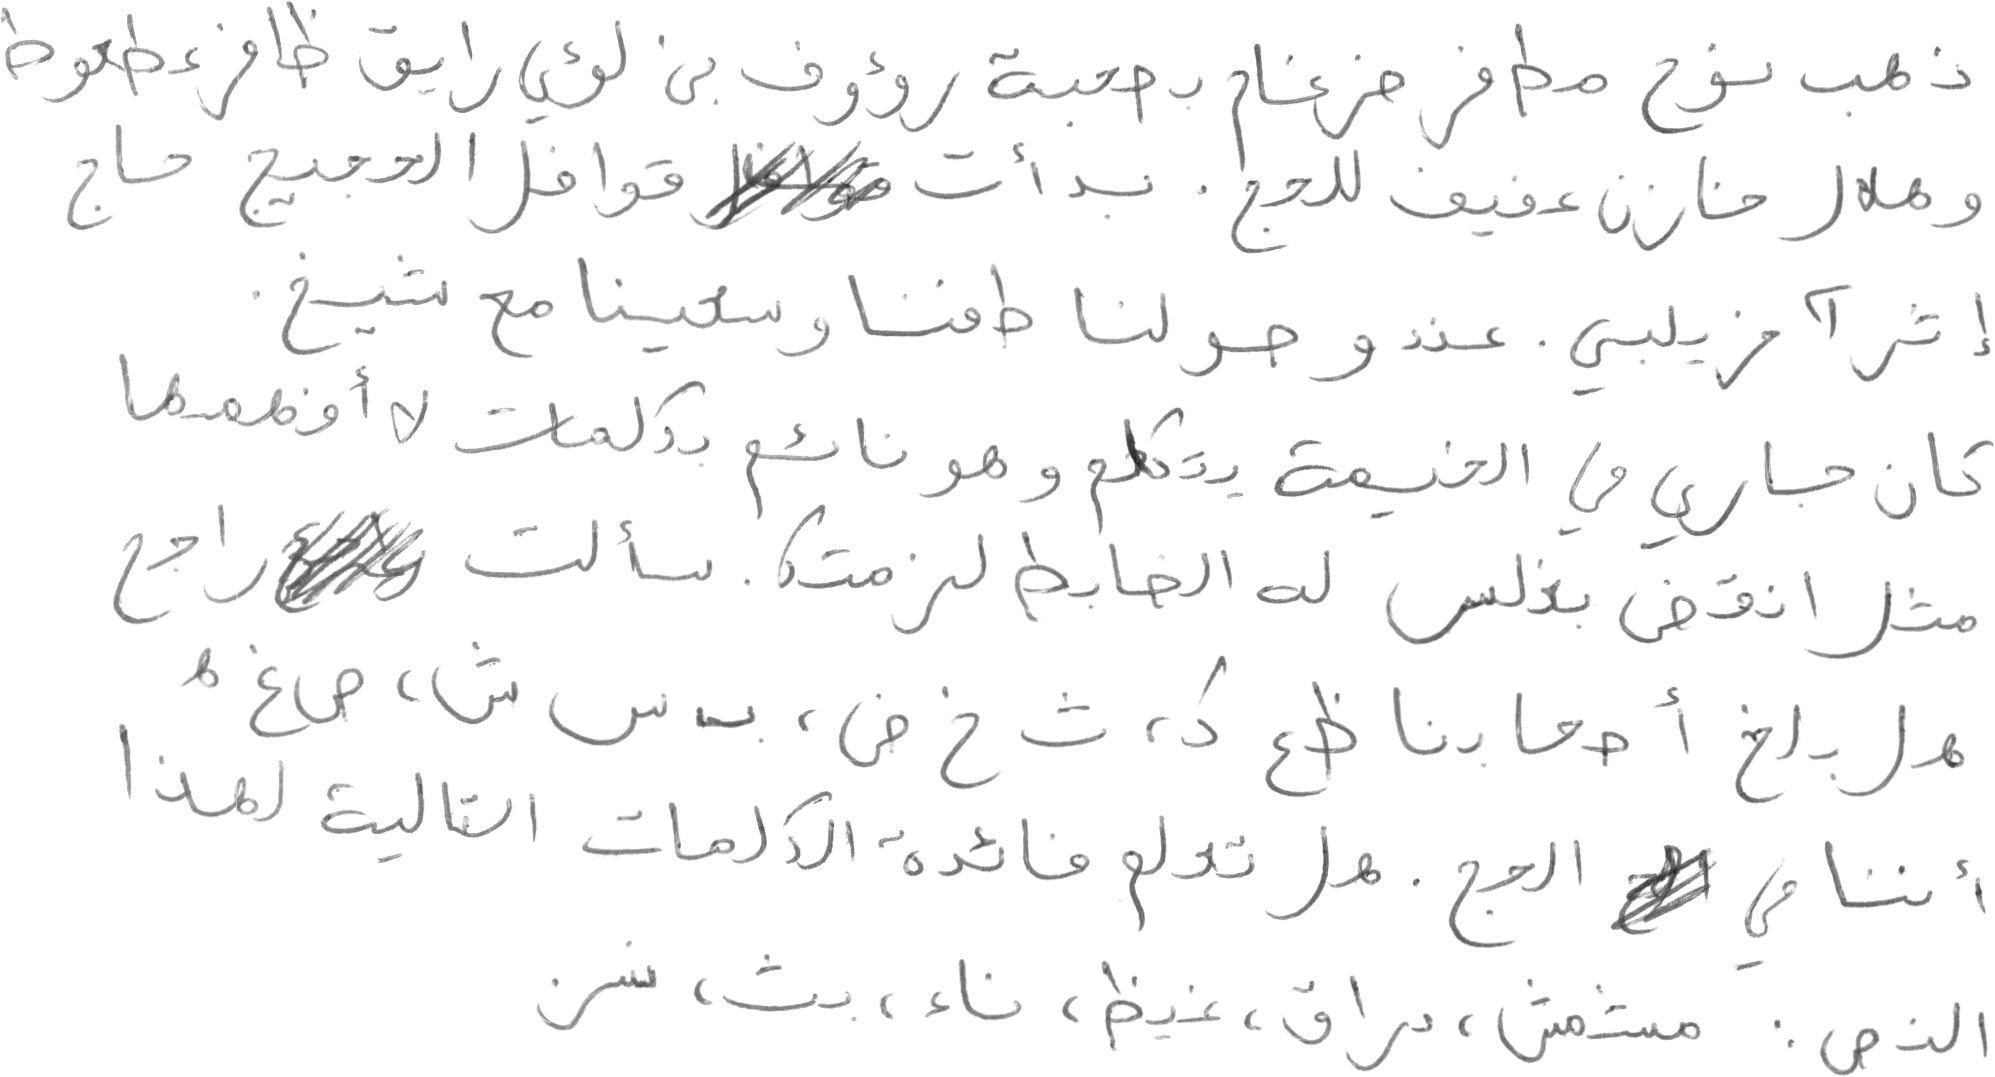 ذهب نوح مظفر ضرغام بصحبة رؤوف بن لؤي رايق ظافر عطعوط
وهلال خازن عفيف للحج . بدأت قوافل الحجيج حاج
إثر آخر يلبي . عند وصولنا طفنا وسعينا مع شيخ .
كان جاري في الخيمة يتكلم وهو نائم بكلمات لا أفهمها
مثل انقض بغلس له الضابط لزمتك . سألت راجح
هل بلغ أصحابنا ظع ك ، ث خ ض ، ب س ش ، ص غ ه
أننا في الحج . هل تعلم فائدة الكلمات التالية لهذا
النص : مشمش ، راق ، غيظ ، ناء ، بث ، شن